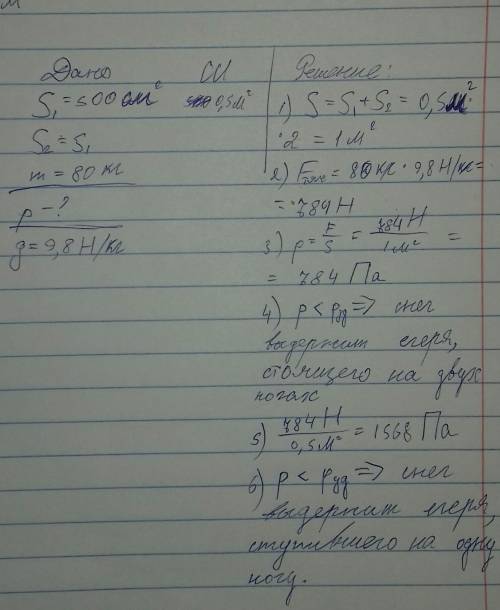 Дано
S₁ = 500 см²
S₂ = S₁
m = 80 кг
p - ?
g = 9,8 Н/кг
СИ
0,5 м²
Решение:
1) S = S₁ + S₂ = 0,5 м² ·
· 2 = 1 м²
2) Fтяж = 80 кг · 9,8 Н/кг =
= 784 Н
3) p = F/S = 784 Н/1 м² =
= 784 Па
4) p < pуд => снег
выдержит егеря,
стоящего на двух
ногах
5) 784 Н/0,5 м² = 1568 Па
6) p < pуд => снег
выдержит егеря,
ступившего на одну
ногу.